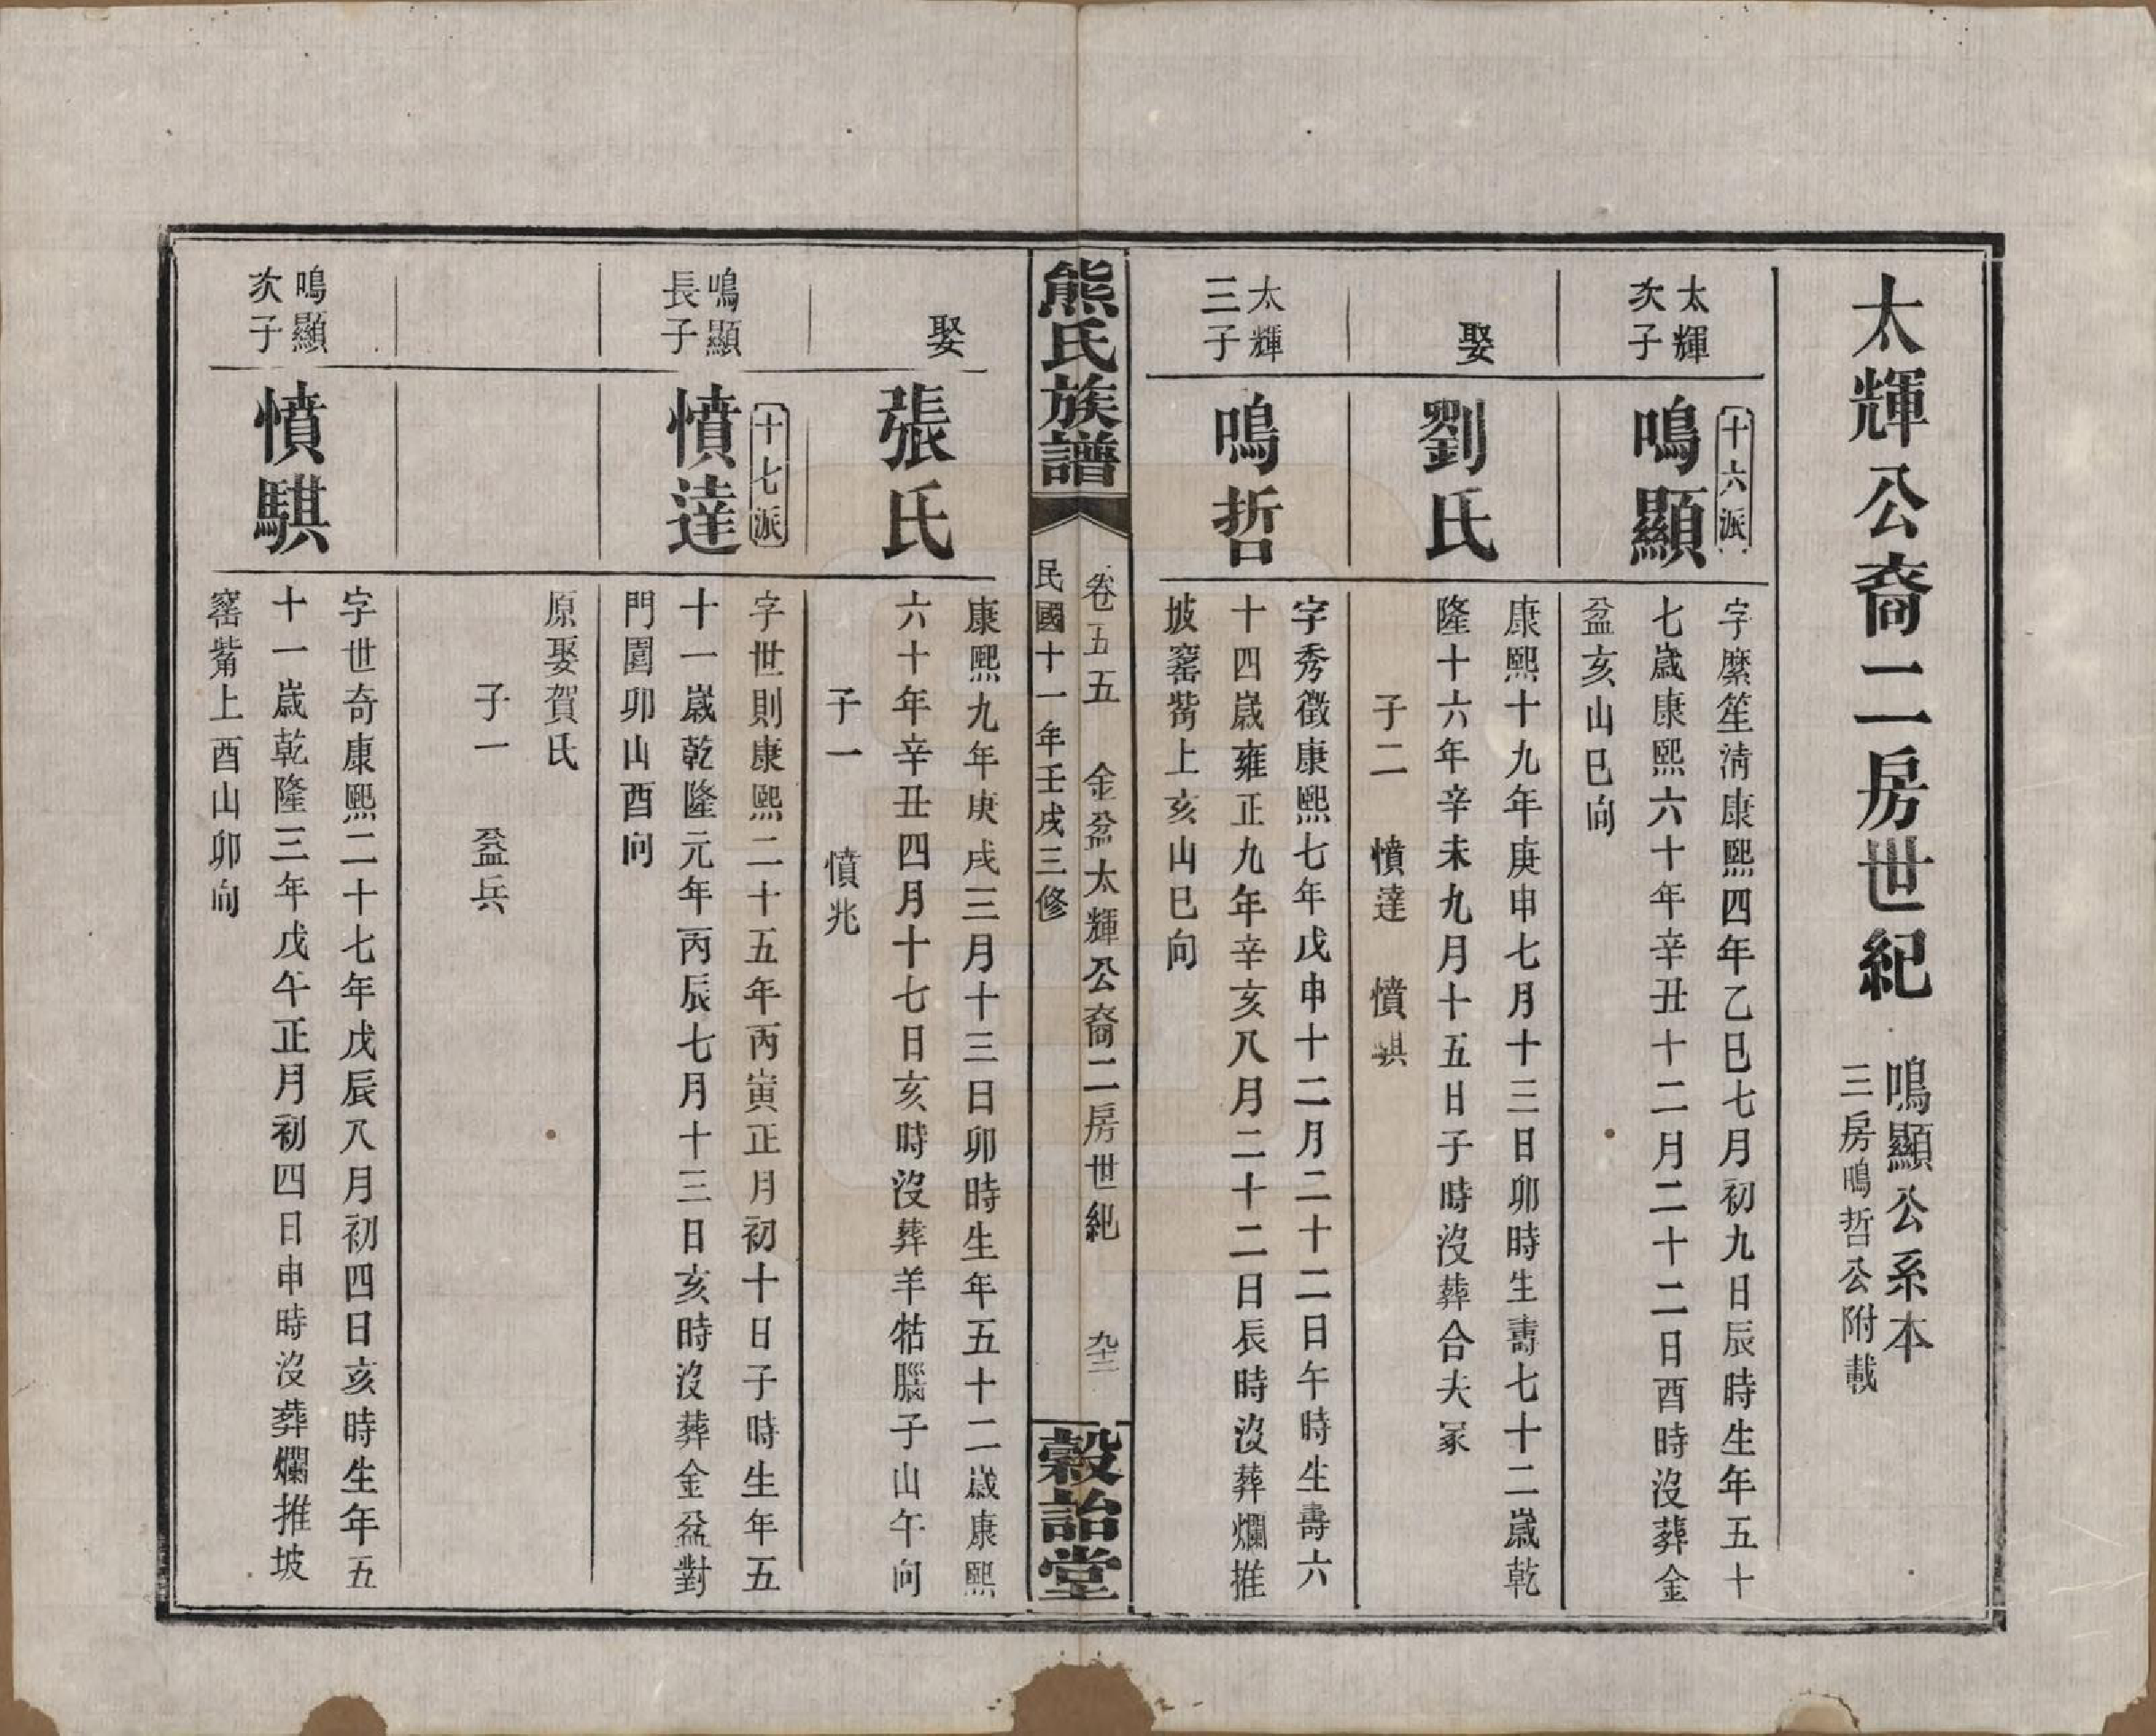 太輝公裔二房世紀
鳴顯公系本
三房鳴哲公附載
太輝
次子
十六派
鳴顯
字縻笙淸康熙四年乙巳七月初九日辰時生年五十
七歲康熙六十年辛丑十二月二十二日酉時沒葬金
盆亥山巳向
娶
劉氏
康熙十九年庚申七月十三日卯時生壽七十二歲乾
隆十六年辛未九月十五日子時沒葬合夫冢
子二 憤達 憤騏
太輝
三子
鳴哲
字秀徵康熙七年戊申十二月二十二日午時生壽六
十四歲雍正九年辛亥八月二十二日辰時沒葬爛推
坡窰觜上亥山巳向
熊氏族譜
卷五五 金盆太輝公裔二房世紀 九十三
民國十一年壬戌三修
穀詒堂
娶
張氏
康熙九年庚戌三月十三日卯時生年五十二歲康熙
六十年辛丑四月十七日亥時沒葬羊牯腦子山午向
子一 憤兆
鳴顯
長子
十七派
憤達
字世則康熙二十五年丙寅正月初十日子時生年五
十一歲乾隆元年丙辰七月十三日亥時沒葬金盆對
門園卯山酉向
原娶賀氏
子一 益兵
鳴顯
次子
憤騏
字世奇康熙二十七年戊辰八月初四日亥時生年五
十一歲乾隆三年戊午正月初四日申時沒葬爛推坡
窰觜上酉山卯向